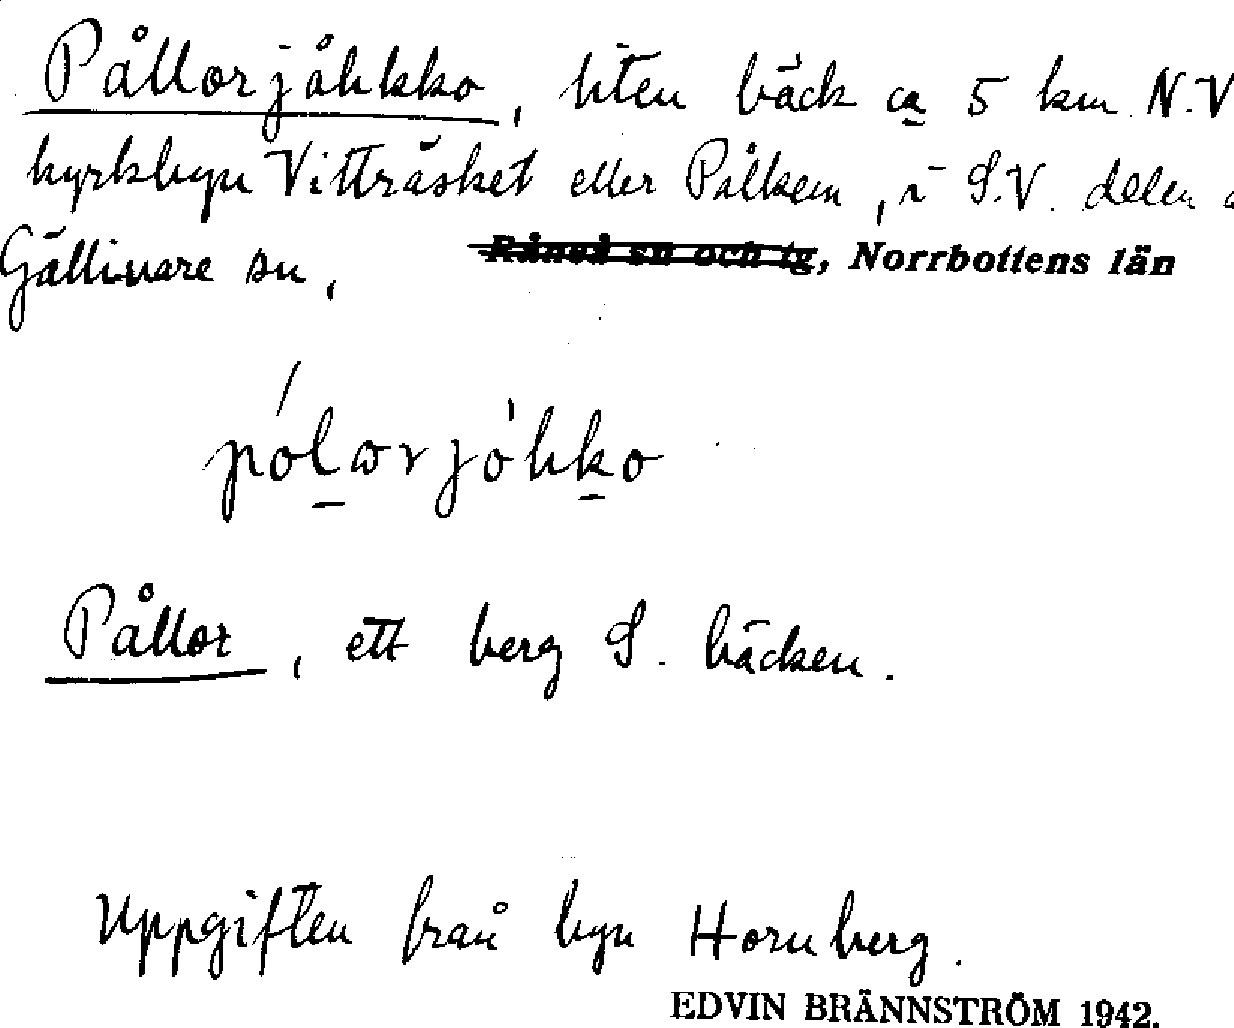 Pållorjåhkko, liten bäck ca 5 km N.V
kyrkbyn Vitträsket eller Pålkem, i S.V. delen a
Gällivare sn, Råneå sn och tg, Norrbottens län
pólɷrjóhko
Pållor, ett berg S. bäcken.
Uppgiften från byn Hornberg.
EDVIN BRÄNNSTRÖM 1942.